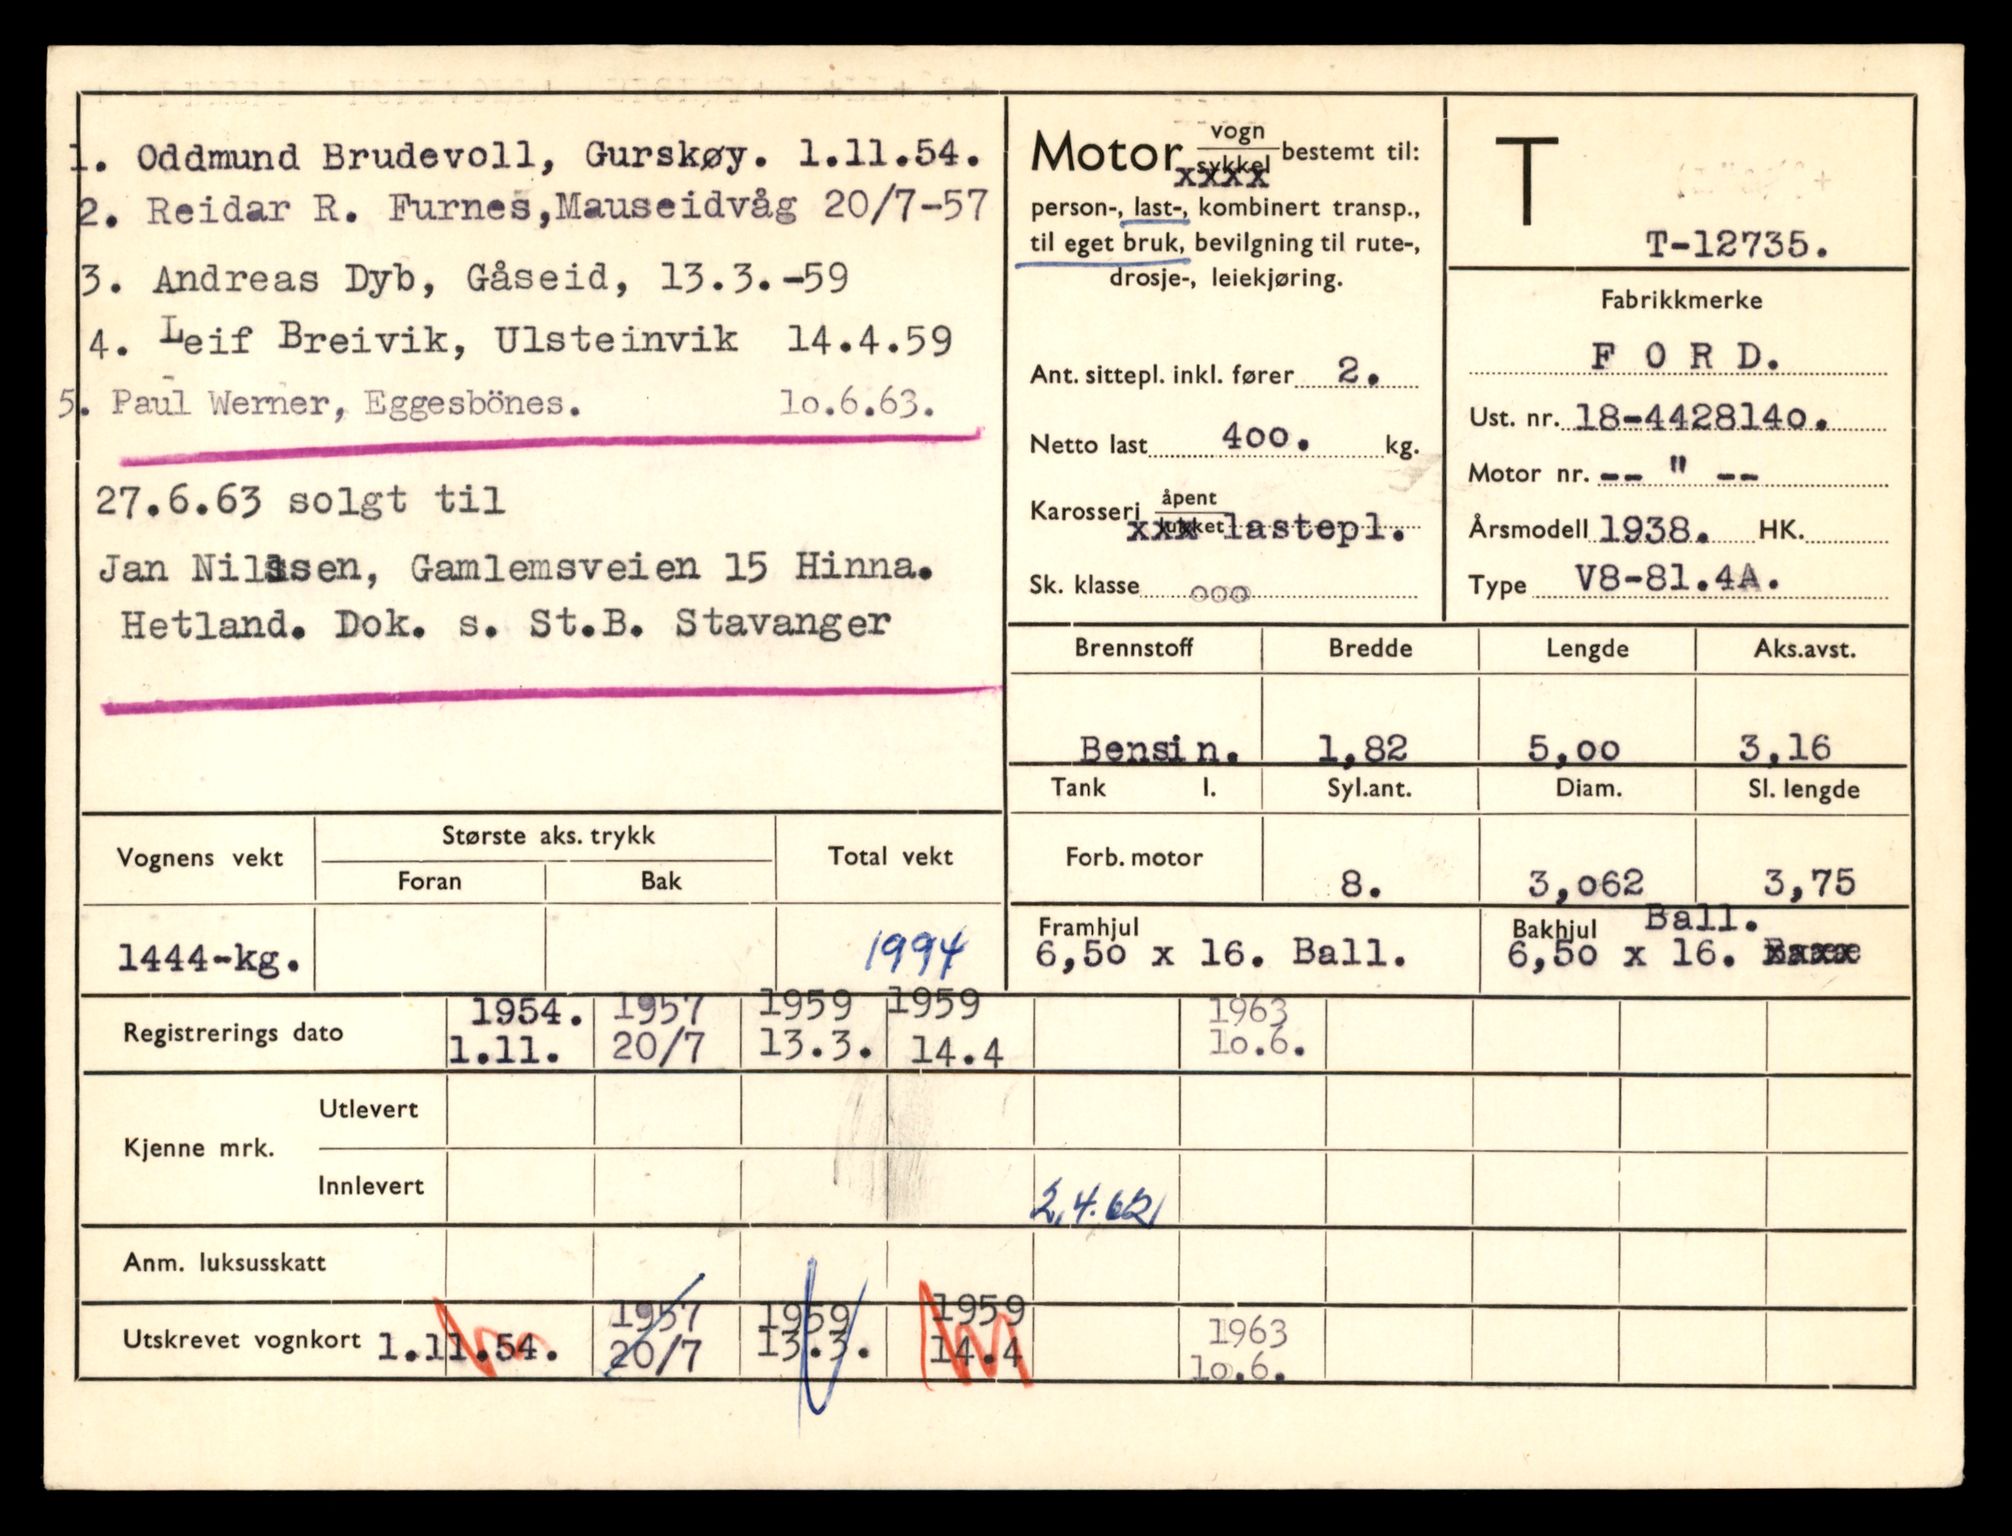 1. Oddmund Brudevoll, Gurskøy. 1.11.54.
2. Reidar R. Furnes,Mauseidvåg 20/7-57
3. Andreas Dyb, Gåseid, 13.3.-59
4. Leif Breivik, Ulsteinvik 14.4.59
5. Paul Werner, Eggesbönes. 10.6.63.
27.6.63 solgt til
Jan Nilssen, Gamlemsveien 15 Hinna.
Hetland. Dok. s. St.B. Stavanger
Motor vogn/sykkel bestemt til:
xxxx
person-, last-, kombinert transp.,
til eget bruk, bevilgning til rute-,
drosje-, leiekjøring.
Ant. sittepl. inkl. fører 2.
Netto last 400. kg.
Karosseri åpent/lukket xxx lastepl.
Sk. klasse ooo
T
T-12735.
Fabrikkmerke
F O R D.
Ust. nr. 18-4428140.
Motor nr. -- " --
Årsmodell 1938. HK.
Type V8-81.4A.
Brennstoff Bredde Lengde Aks.avst.
Bensin. 1,82 5,00 3,16
Tank l. Syl.ant. Diam. Sl. lengde
Forb. motor 8. 3,062 3,75
Framhjul Bakhjul Ball.
6,50 x 16. Ball. 6,50 x 16. xxxx
Vognens vekt Største aks. trykk Total vekt
Foran Bak
1444-kg. 1994
Registrerings dato 1954. 1957 1959 1959 1963
1.11. 20/7 13.3. 14.4 10.6.
Kjenne mrk. Utlevert
Innlevert 2.4.62
Anm. luksusskatt
Utskrevet vognkort 1.11.54. 1957 1959 1959 1963
20/7 13.3. 14.4 10.6.